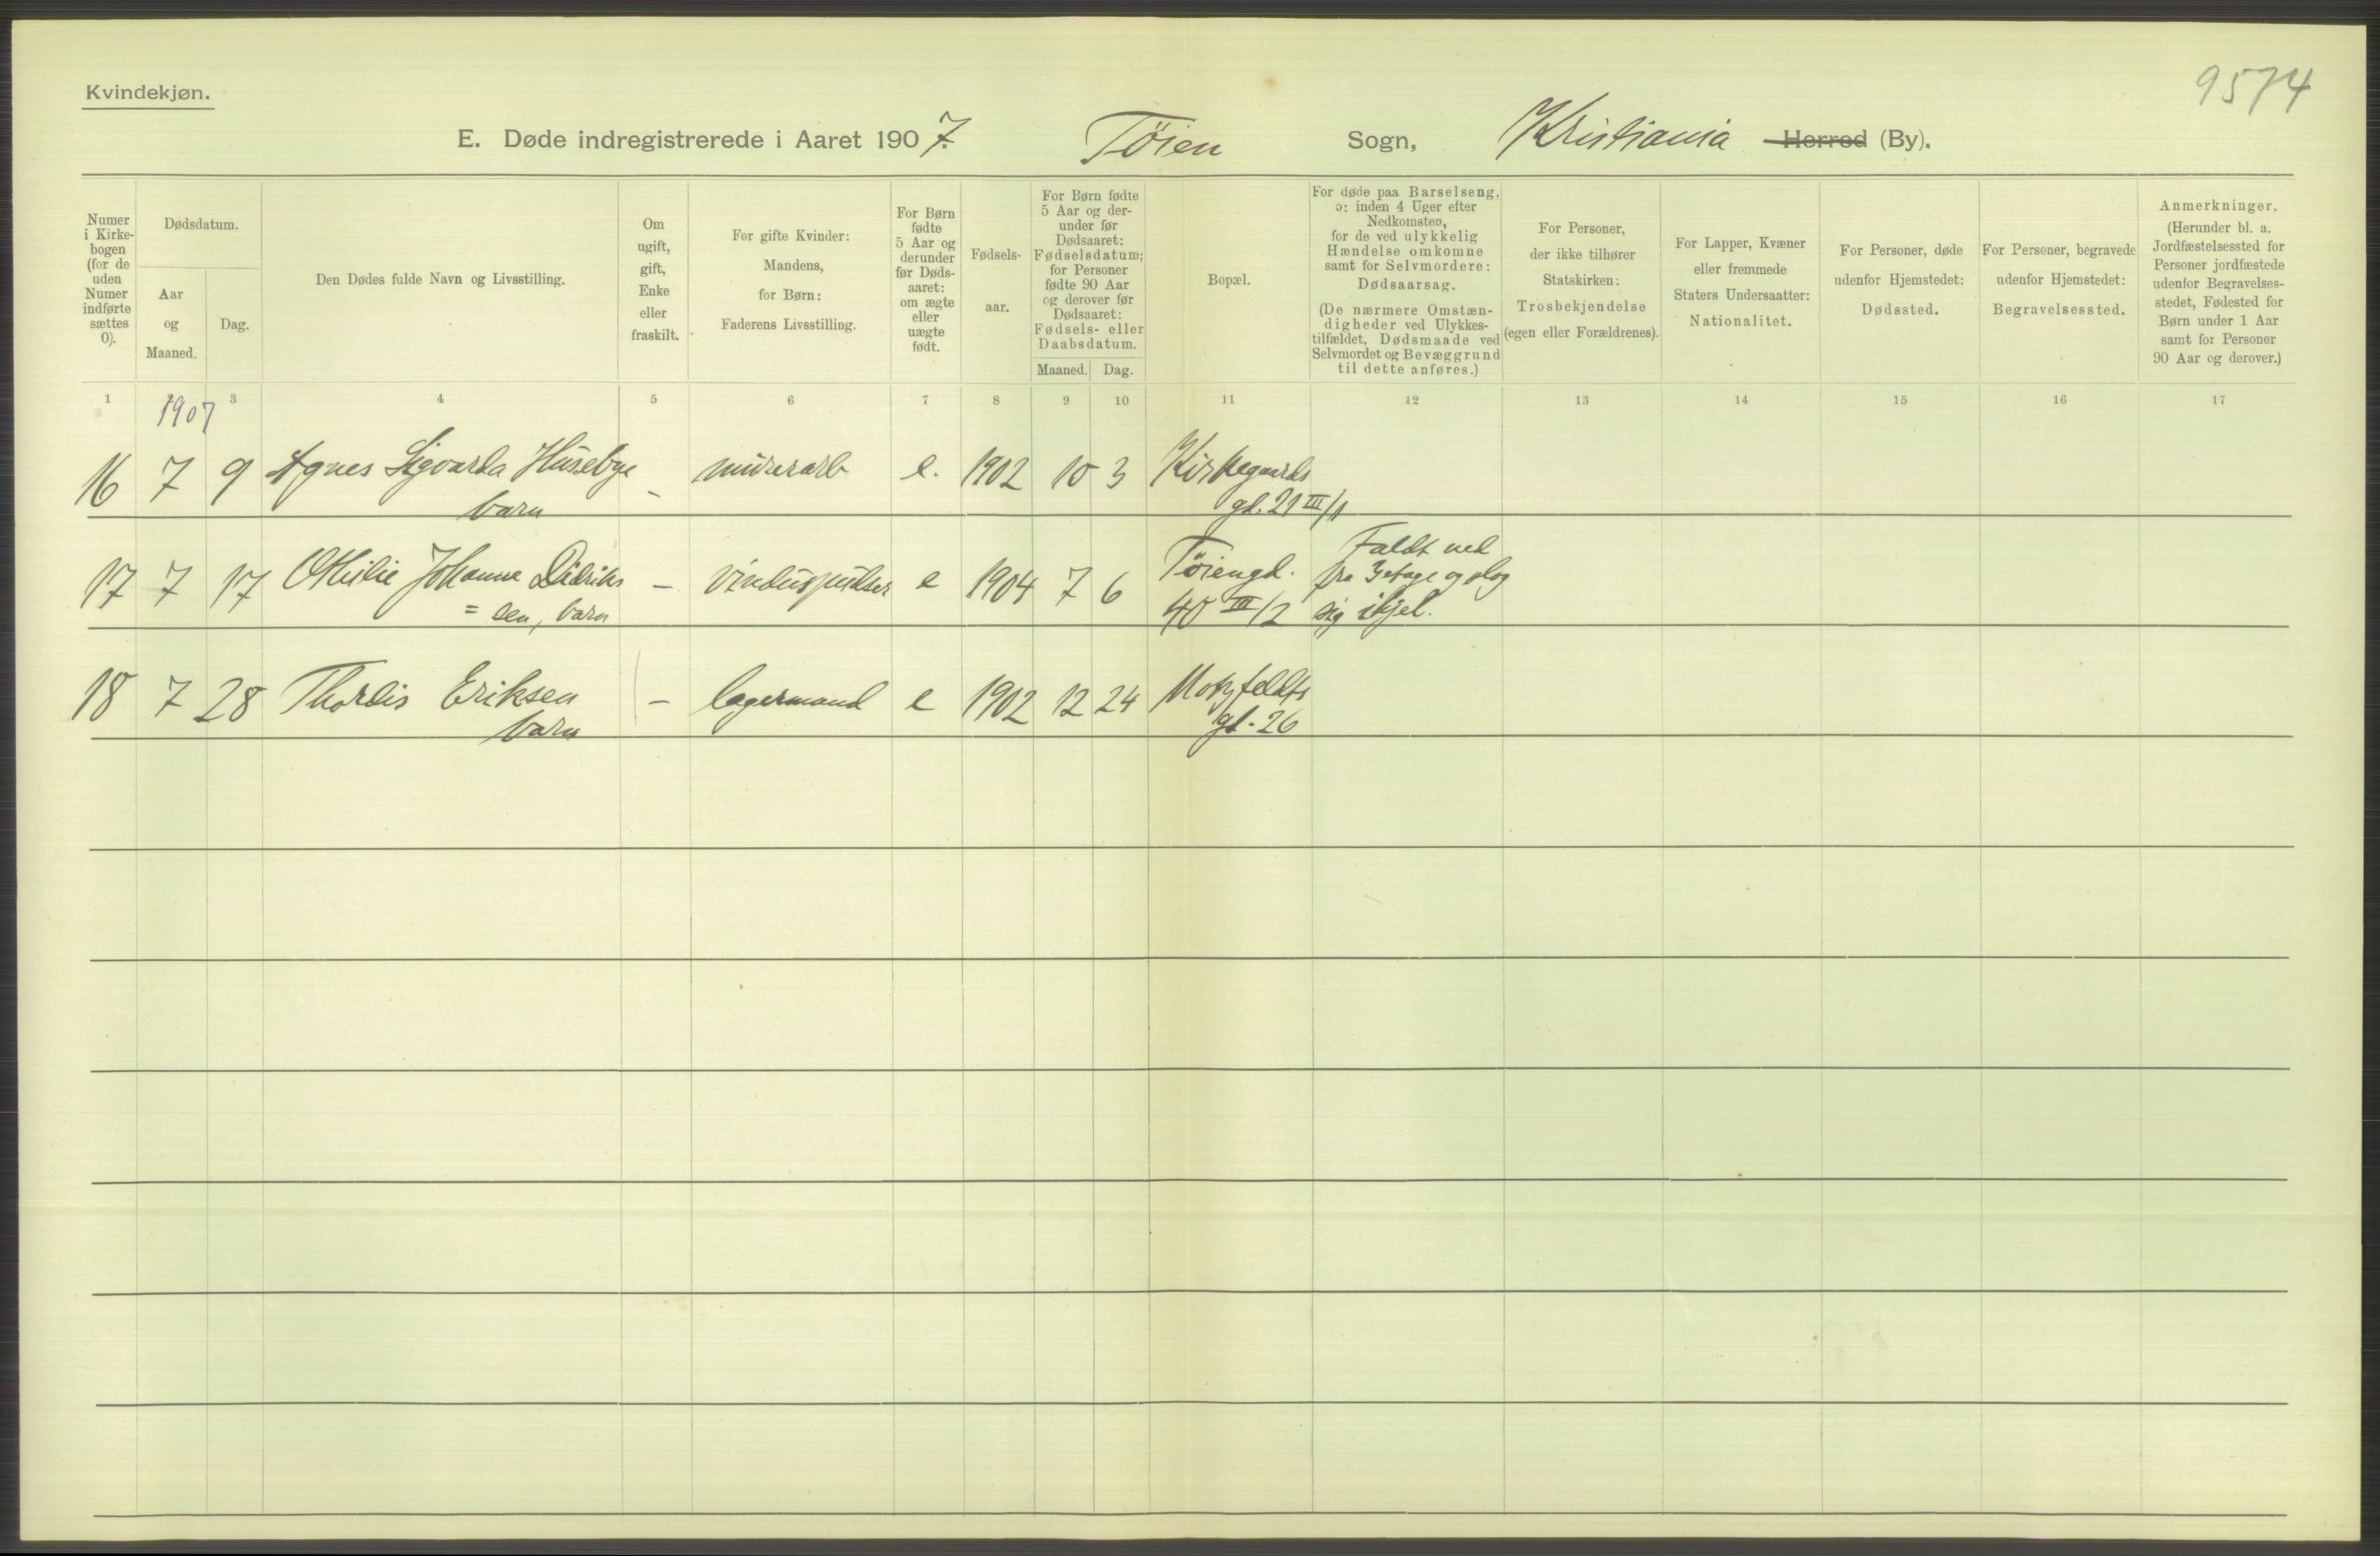 Kvindekjøn.
9574
E. Døde indregistrerede i Aaret 1907. Töien Sogn, Kristiania Herred (By).
Numer
i Kirke-
bogen
(for de
uden
Numer
indførte
sættes
0).
Dødsdatum.
Aar
og
Maaned.
Dag.
Den Dødes fulde Navn og Livsstilling.
Om
ugift,
gift,
Enke
eller
fraskilt.
For gifte Kvinder:
Mandens,
for Børn:
Faderens Livsstilling.
For Børn
fødte
5 Aar og
derunder
før Døds-
aaret:
om ægte
eller
uægte
født.
Fødsels-
aar.
For Børn fødte
5 Aar og der-
under før
Dødsaaret:
Fødselsdatum;
for Personer
fødte 90 Aar
og derover før
Dødsaaret:
Fødsels- eller
Daabsdatum.
Maaned. Dag.
Bopæl.
For døde paa Barselseng,
ɔ: inden 4 Uger efter
Nedkomsten,
for de ved ulykkelig
Hændelse omkomne
samt for Selvmordere:
Dødsaarsag.
(De nærmere Omstæn-
digheder ved Ulykkes-
tilfældet, Dødsmaade ved
Selvmordet og Bevæggrund
til dette anføres.)
For Personer,
der ikke tilhører
Statskirken:
Trosbekjendelse
(egen eller Forældrenes).
For Lapper, Kvæner
eller fremmede
Staters Undersaatter:
Nationalitet.
For Personer, døde
udenfor Hjemstedet:
Dødssted.
For Personer, begravede
udenfor Hjemstedet:
Begravelsessted.
Anmerkninger.
(Herunder bl. a.
Jordfæstelsessted for
Personer jordfæstede
udenfor Begravelses-
stedet, Fødested for
Børn under 1 Aar
samt for Personer
90 Aar og derover.)
1 3 4 5 6 7 8 9 10 11 12 13 14 15 16 17
1907
16 7 9 Agnes Sigvarda Husebye - murerarb e. 1902 10 3 Kirkegaards
barn gd. 21 III/1
17 7 17 Othilie Johanne Didriks - vinduspudser e 1904 7 6 Töiengd. Faldt ned
= sen, barn 40 III/2 fra 3 etage og slog
sig ihjel.
18 7 28 Thordis Eriksen - lagermand e 1902 12 24 Motzfeldts
barn gd. 26